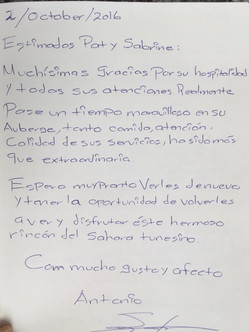 2/October/2016
Estimados Pat y Sabrine:
Muchísimas gracias por su hospitalidad
y todas sus atenciones Realmente
Pase un tiempo maravilloso en su
Auberge, tanto comida, atención,
Calidad de sus servicios, ha sidomás
que extraordinaria.
Espero muy Pronto Verles denuevo
y tener la oportunidad de volverles
a ver y disfrutar éste hermoso
rincón del Sahara tunesino.
Com mucho gusto y afecto
Antonio